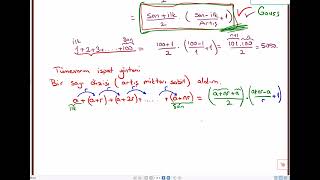 Son+ilk / 2 · (Son-ilk / Artış + 1) Gauss
ilk Son
1+2+3+.....+100 = 100+1 / 2 · (100-1 / 1 + 1) = 101.100 / 2 = 5050
Tümevarım ispat yöntemi
Bir sayı dizisi (artış miktarı sabit) aldım.
r r r
a + (a+r) + (a+2r) + ..... + (a+nr) = (a+nr+a / 2) · (a+nr-a / r + 1)
ilk son